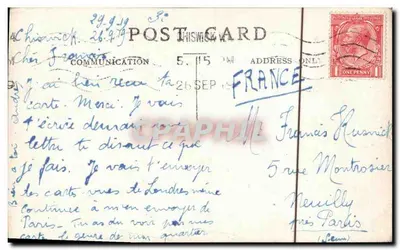 29.9.19
Chiswick 26.9.19
POST CARD
CHISWICK
COMMUNICATION
5.15 PM
ADDRESS ONLY
26 SEP
FRANCE
ONE PENNY
Cher Francis
J'ai bien reçu ta
carte. Merci. Je vais
t'écrire demain une
lettre te disant ce que
je fais. Je vais t'envoyer
des cartes vues de Londres même
continue à m'en envoyer de
Paris. Tu as du voir par mes
cartes le genre de mon quartier
M Francis
5 rue Montrosier
Neuilly
près Paris
(Seine)